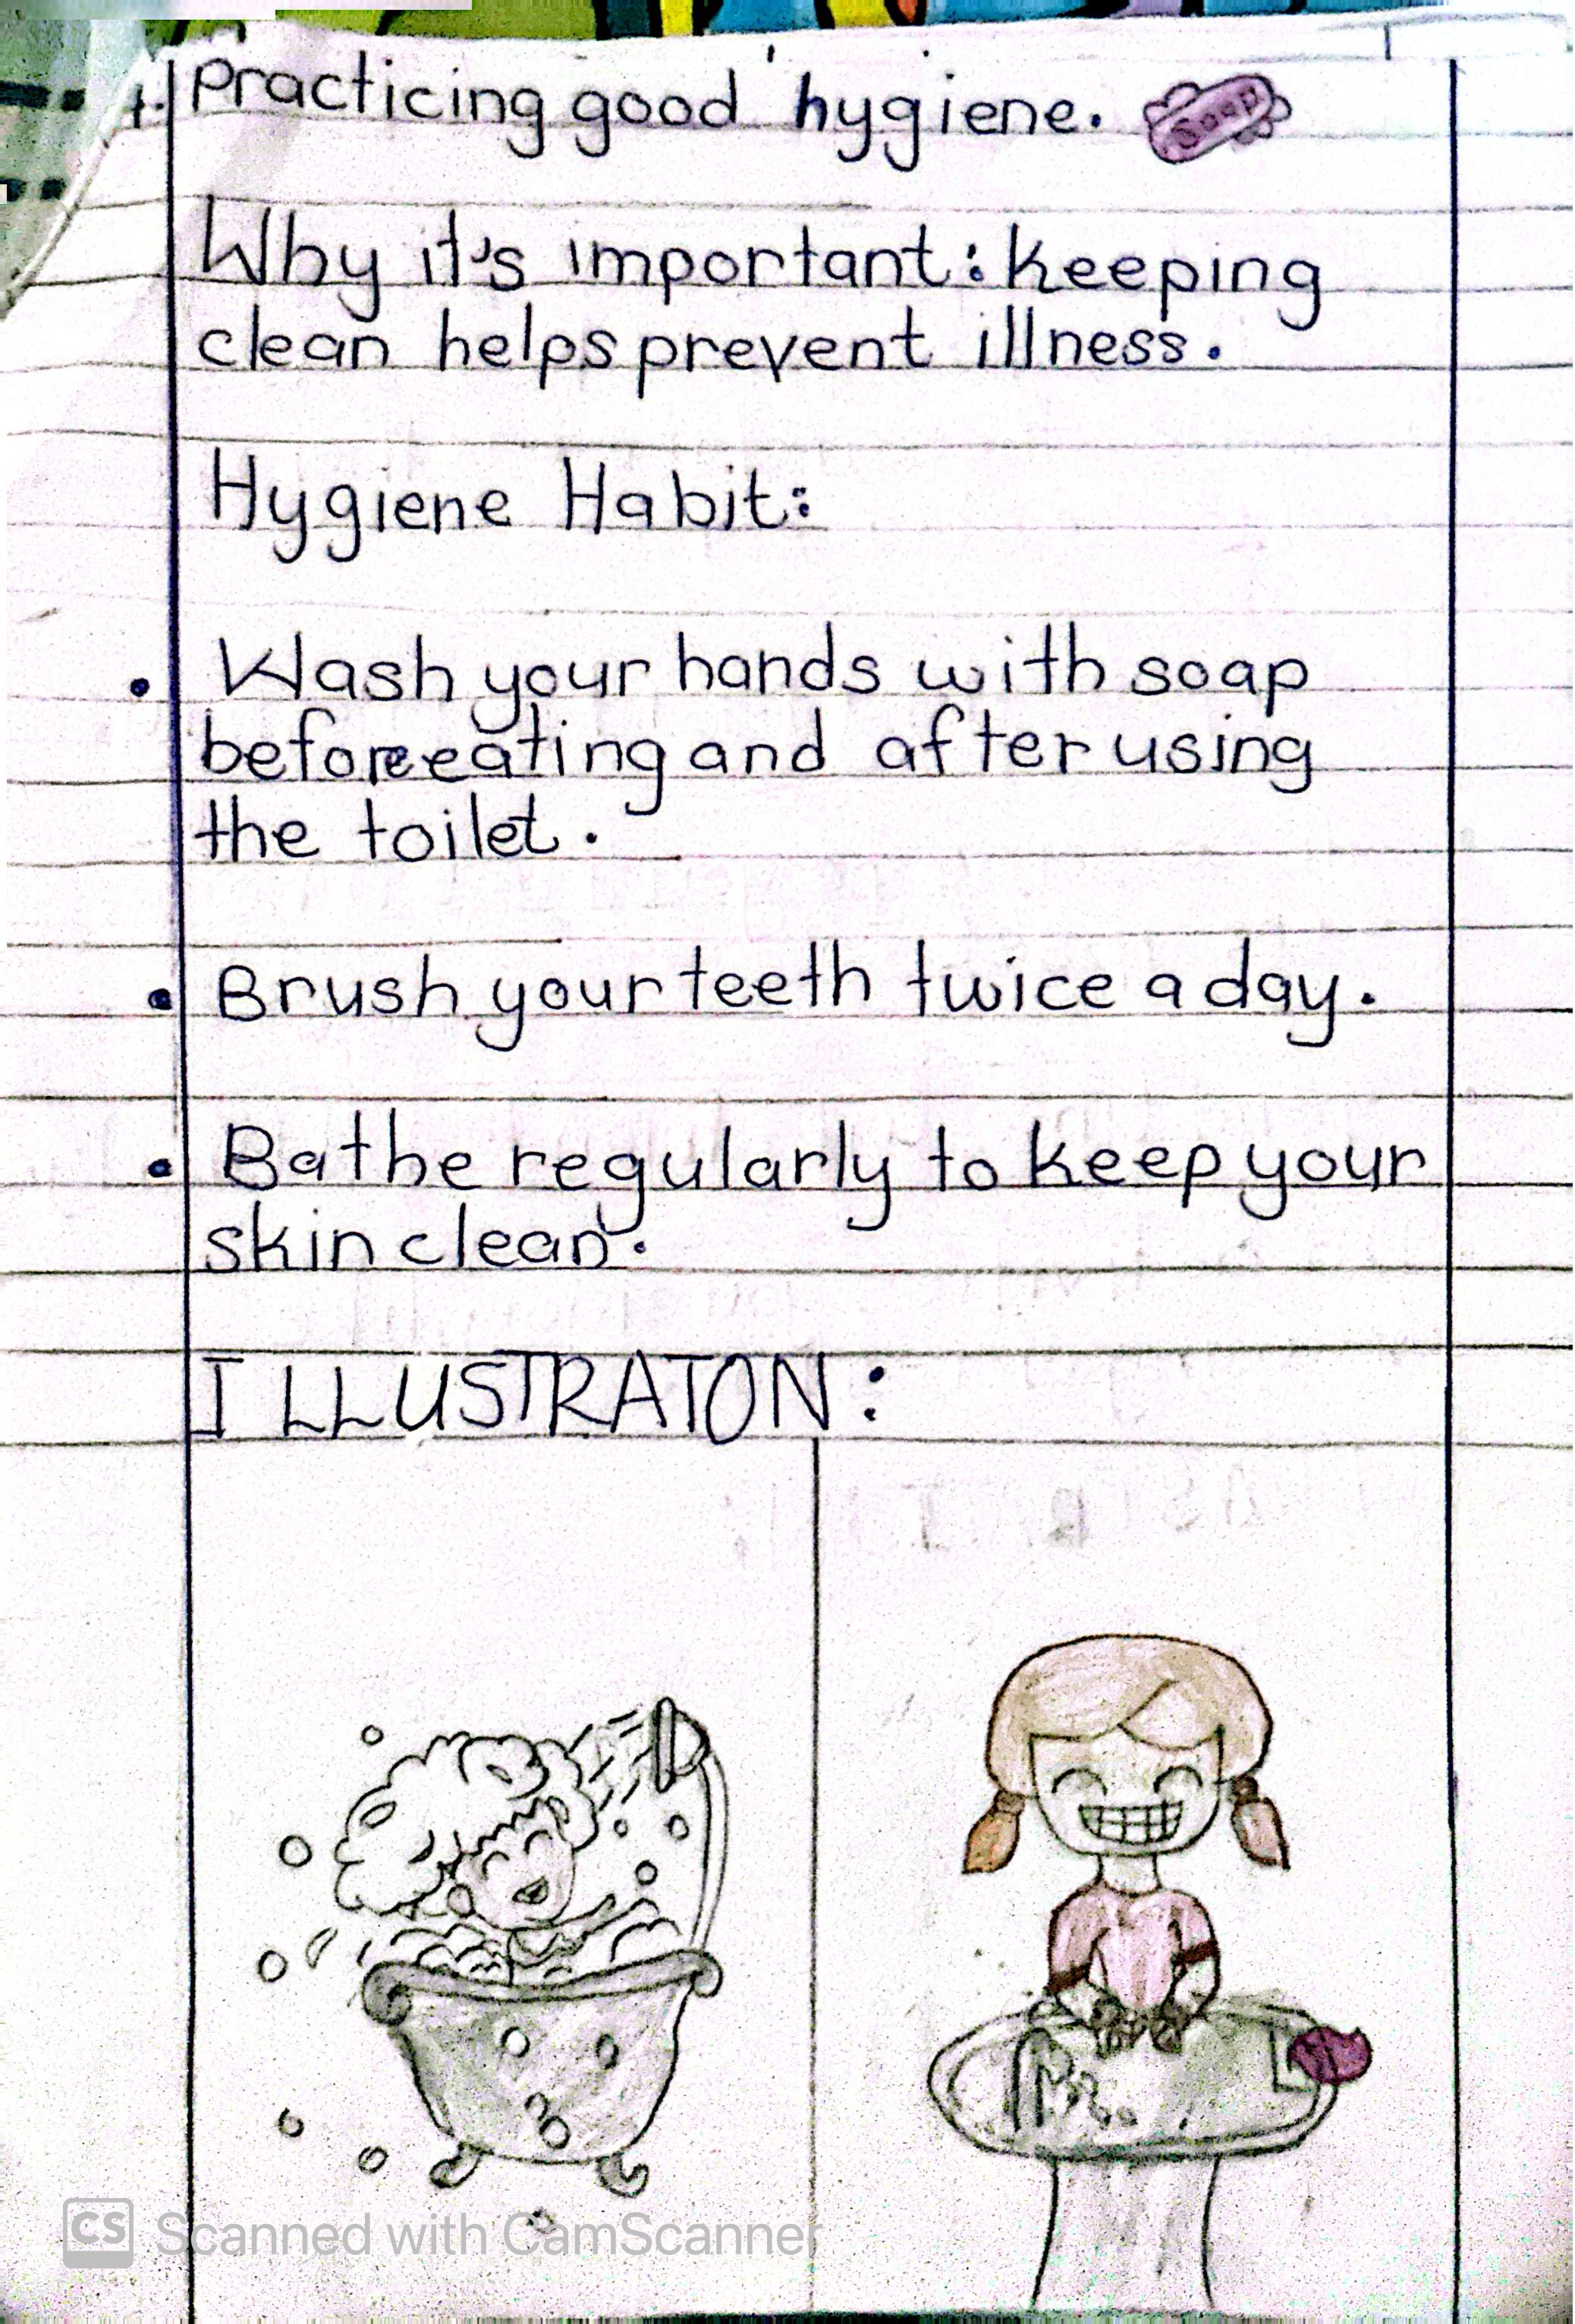 Practicing good hygiene. Soap
Why it's important: keeping
clean helps prevent illness.
Hygiene Habit:
• Wash your hands with soap
before eating and after using
the toilet.
• Brush your teeth twice a day.
• Bathe regularly to keep your
skin clean.
ILLUSTRATON:
CS Scanned with CamScanner